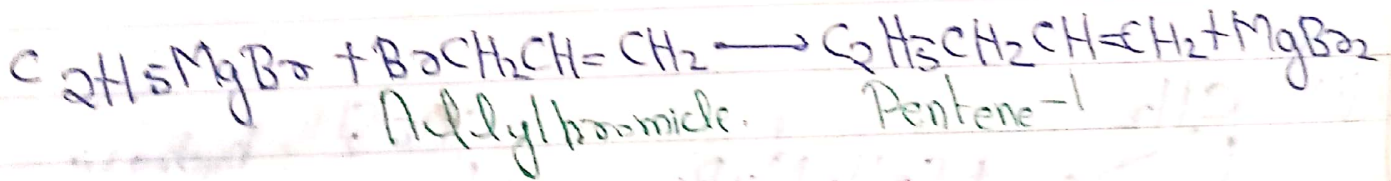 C2H5MgBr + BrCH2CH=CH2 ⟶ C2H5CH2CH=CH2+MgBr2
Allylbromide. Pentene-1